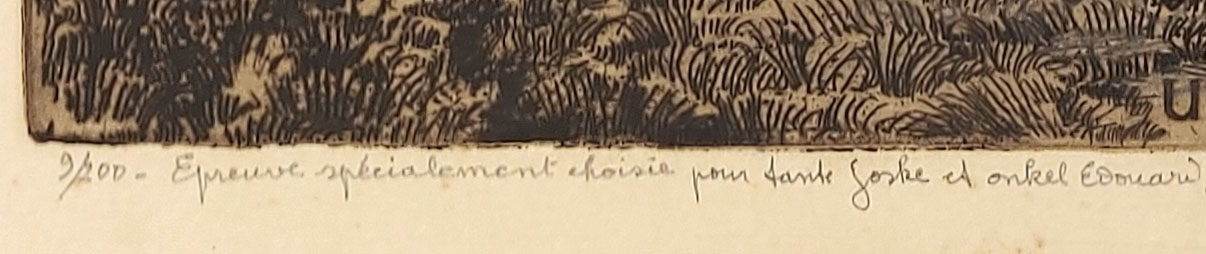 U
9/200 - Epreuve spécialement choisie pour tante Goske et onkel Edouard.